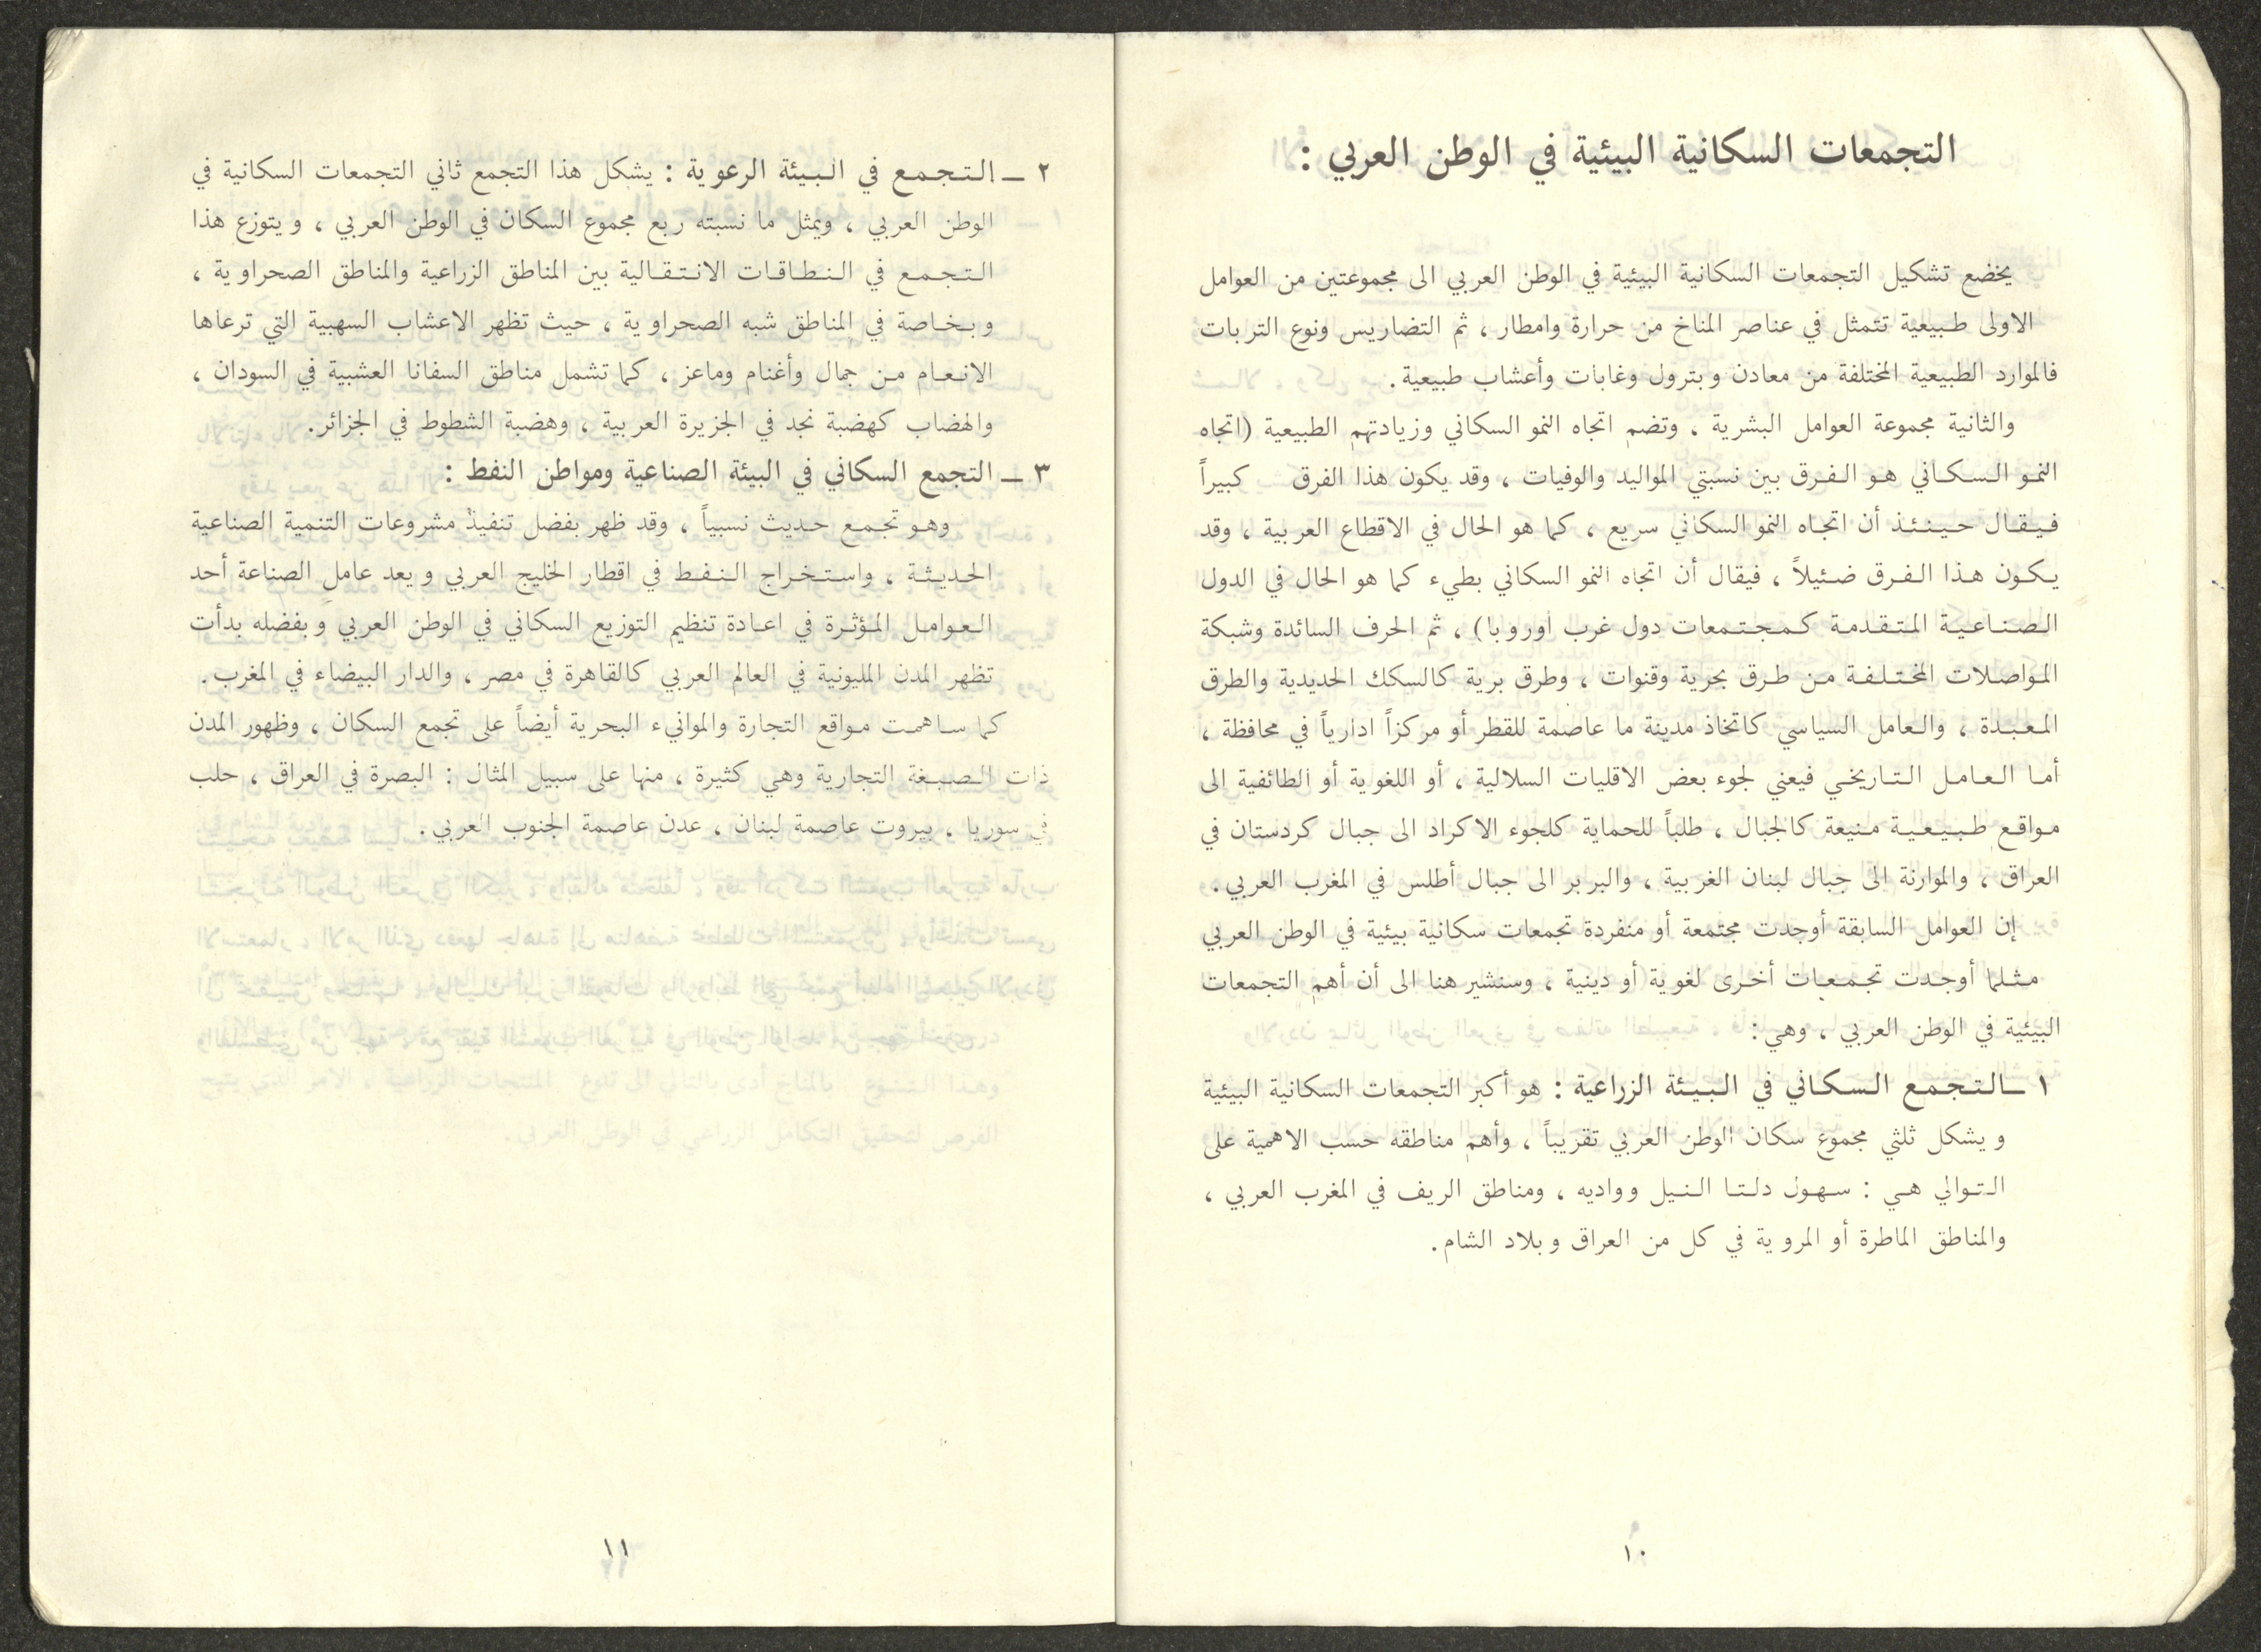 التجمعات السكانية البيئية في الوطن العربي :
يخضع تشكيل التجمعات السكانية البيئية في الوطن العربي الى مجموعتين من العوامل
الاولى طبيعية تتمثل في عناصر المناخ من حرارة وامطار ، ثم التضاريس ونوع التربات
فالموارد الطبيعية المختلفة من معادن وبترول وغابات وأعشاب طبيعية .
والثانية مجموعة العوامل البشرية ، وتضم اتجاه النمو السكاني وزيادتهم الطبيعية (اتجاه
النمو السكاني هو الفرق بين نسبتي المواليد والوفيات ، وقد يكون هذا الفرق كبيراً
فيقال حينئذ أن اتجاه النمو السكاني سريع ، كما هو الحال في الاقطاع العربية ، وقد
يكون هذا الفرق ضئيلاً ، فيقال أن اتجاه النمو السكاني بطيء كما هو الحال في الدول
الصناعية المتقدمة كمجتمعات دول غرب اوروبا) ، ثم الحرف السائدة وشبكة
المواصلات المختلفة من طرق بحرية وقنوات ، وطرق برية كالسكك الحديدية والطرق
المعبدة ، والعامل السياسي كاتخاذ مدينة ما عاصمة للقطر أو مركزاً ادارياً في محافظة ،
أما العامل التاريخي فيعني لجوء بعض الاقليات السلالية ، أو اللغوية أو الطائفية الى
مواقع طبيعية منيعة كالجبال ، طلباً للحماية كلجوء الاكراد الى جبال كردستان في
العراق ، والموارنة الى جبال لبنان الغربية ، والبربر الى جبال أطلس في المغرب العربي .
إن العوامل السابقة أوجدت مجتمعة أو منفردة تجمعات سكانية بيئية في الوطن العربي
مثلما أوجدت تجمعات أخرى لغوية أو دينية ، وسنشير هنا الى أن أهم التجمعات
البيئية في الوطن العربي ، وهي :
١ ـ التجمع السكاني في البيئة الزراعية : هو أكبر التجمعات السكانية البيئية
ويشكل ثلثي مجموع سكان الوطن العربي تقريباً ، وأهم مناطقه حسب الاهمية على
التوالي هي : سهول دلتا النيل وواديه ، ومناطق الريف في المغرب العربي ،
والمناطق الماطرة أو المروية في كل من العراق وبلاد الشام .
١٠
٢ ـ التجمع في البيئة الرعوية : يشكل هذا التجمع ثاني التجمعات السكانية في
الوطن العربي ، ويمثل ما نسبته ربع مجموع السكان في الوطن العربي ، ويتوزع هذا
التجمع في النطاقات الانتقالية بين المناطق الزراعية والمناطق الصحراوية ،
وبخاصة في المناطق شبه الصحراوية ، حيث تظهر الاعشاب السهبية التي ترعاها
الانعام من جمال وأغنام وماعز ، كما تشمل مناطق السفانا العشبية في السودان ،
والهضاب كهضبة نجد في الجزيرة العربية ، وهضبة الشطوط في الجزائر .
٣ ـ التجمع السكاني في البيئة الصناعية ومواطن النفط :
وهو تجمع حديث نسبياً ، وقد ظهر بفضل تنفيذ مشروعات التنمية الصناعية
الحديثة ، واستخراج النفط في اقطار الخليج العربي ويعد عامل الصناعة أحد
العوامل المؤثرة في اعادة تنظيم التوزيع السكاني في الوطن العربي وبفضله بدأت
تظهر المدن المليونية في العالم العربي كالقاهرة في مصر ، والدار البيضاء في المغرب .
كما ساهمت مواقع التجارة والموانيء البحرية أيضاً على تجمع السكان ، وظهور المدن
ذات الصبغة التجارية وهي كثيرة ، منها على سبيل المثال : البصرة في العراق ، حلب
في سوريا ، بيروت عاصمة لبنان ، عدن عاصمة الجنوب العربي .
١١